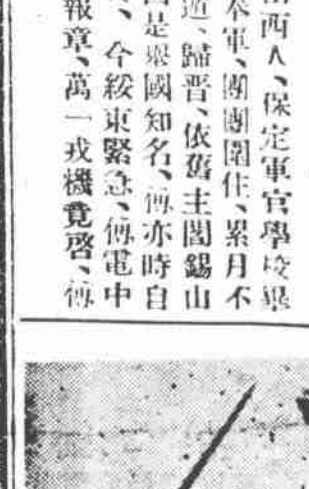 西人、保定軍官學校畢
本軍、團團圍住、累月不
歸晋、依舊主閻錫山
是舉國知名、傅亦時自
、今綏東緊急、傅電中
報章、萬一戎機竟啓、傅